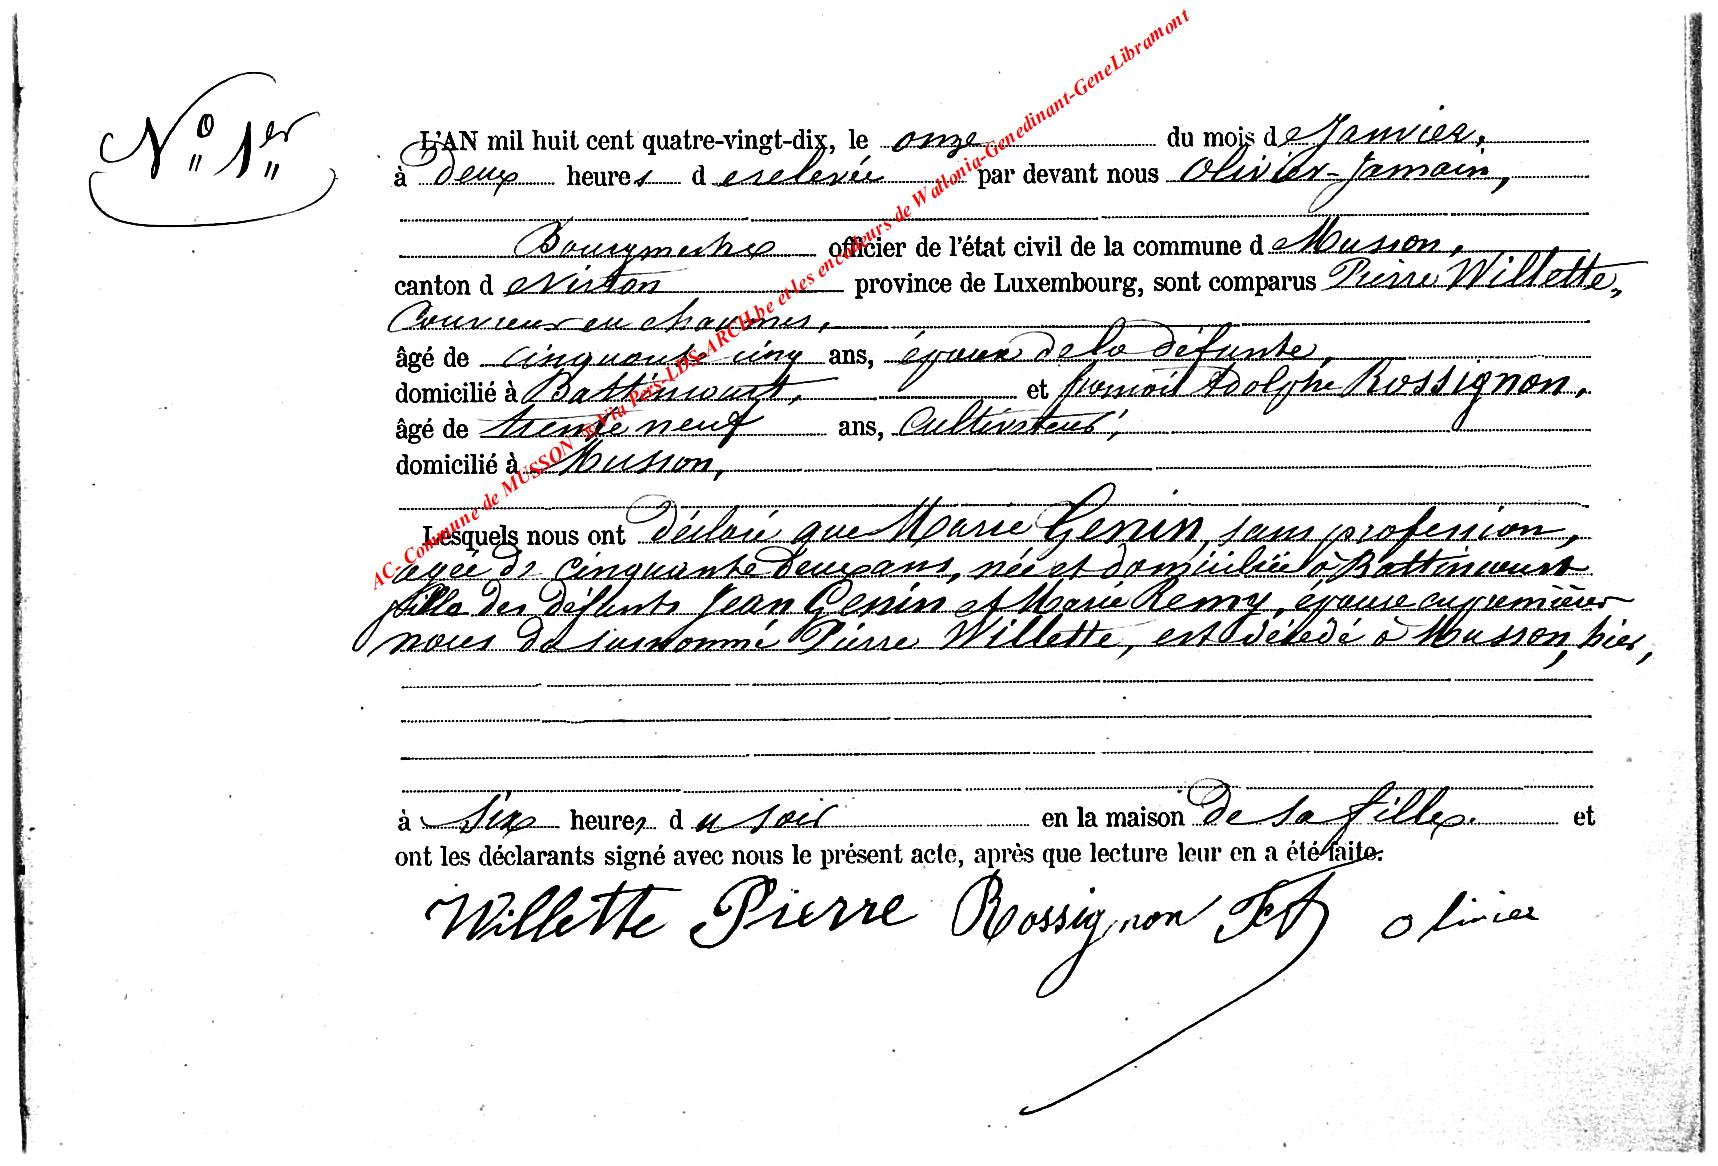 N° 1er
L'AN mil huit cent quatre-vingt-dix, le onze du mois de Janvier,
à deux heures de relevée par devant nous Olivier-Jamain,
Bourgmestre officier de l'état civil de la commune de Musson,
canton de Virton province de Luxembourg, sont comparus Pierre Willette,
Couvreur en chaumes,
âgé de cinquante cinq ans, époux de la défunte,
domicilié à Battincourt, et françois Adolphe Rossignon,
âgé de trente neuf ans, Cultivateur,
domicilié à Musson,
Lesquels nous ont déclaré que Marie Genin, sans profession,
agée de cinquante deux ans, née et domiciliée à Battincourt
fille des défunts Jean Genin et Marie Remy, épouse en premières
noces du susnommé Pierre Willette, est décédé à Musson, hier,
à six heures du soir en la maison de sa fille. et
ont les déclarants signé avec nous le présent acte, après que lecture leur en a été faite.
Willette Pierre Rossignon FA Olivier
AC-Commune de MUSSON Via Pers-LDS-ARCH.be et les encodeurs de Wallonia-Genedinant-GeneLibramont